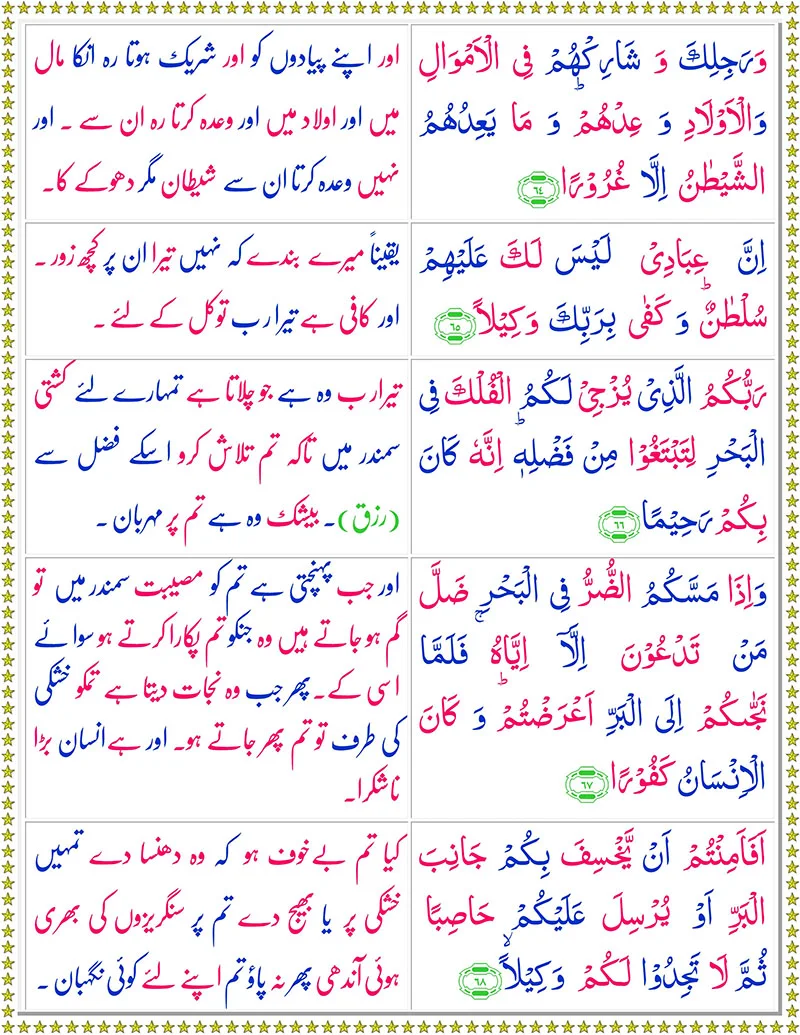 وَرَجِلِكَ وَ شَارِكْهُمْ فِی الْاَمْوَالِ
وَالْاَوْلَادِ وَ عِدْهُمْ ؕ وَ مَا یَعِدُهُمُ
الشَّیْطٰنُ اِلَّا غُرُوْرًا ﴿۶۴﴾
اور اپنے پیادوں کو اور شریک ہوتا رہ انکا مال
میں اور اولاد میں اور وعدہ کرتا رہ ان سے ۔ اور
نہیں وعدہ کرتا ان سے شیطان مگر دھوکے کا۔
اِنَّ عِبَادِیْ لَیْسَ لَكَ عَلَیْهِمْ
سُلْطٰنٌ ؕ وَ كَفٰی بِرَبِّكَ وَكِیْلًا ﴿۶۵﴾
یقیناً میرے بندے کہ نہیں تیرا ان پر کچھ زور ۔
اور کافی ہے تیرا رب توکل کے لئے ۔
رَبُّكُمُ الَّذِیْ یُزْجِیْ لَكُمُ الْفُلْكَ فِی
الْبَحْرِ لِتَبْتَغُوْا مِنْ فَضْلِهٖ ؕ اِنَّهٗ كَانَ
بِكُمْ رَحِیْمًا ﴿۶۶﴾
تیرا رب وہ ہے جو چلاتا ہے تمہارے لئے کشتی
سمندر میں تاکہ تم تلاش کرو اسکے فضل سے
(رزق) ۔ بیشک وہ ہے تم پر مہربان ۔
وَاِذَا مَسَّكُمُ الضُّرُّ فِی الْبَحْرِ ضَلَّ
مَنْ تَدْعُوْنَ اِلَّاۤ اِیَّاهُ ۚ فَلَمَّا
نَجّٰىكُمْ اِلَی الْبَرِّ اَعْرَضْتُمْ ؕ وَ كَانَ
الْاِنْسَانُ كَفُوْرًا ﴿۶۷﴾
اور جب پہنچتی ہے تم کو مصیبت سمندر میں تو
گم ہو جاتے ہیں وہ جنکو تم پکارا کرتے ہو سوائے
اسی کے۔ پھر جب وہ نجات دیتا ہے تمکو خشکی
کی طرف تو تم پھر جاتے ہو۔ اور ہے انسان بڑا
ناشکرا۔
اَفَاَمِنْتُمْ اَنْ یَّخْسِفَ بِكُمْ جَانِبَ
الْبَرِّ اَوْ یُرْسِلَ عَلَیْكُمْ حَاصِبًا
ثُمَّ لَا تَجِدُوْا لَكُمْ وَكِیْلًا ۙ﴿۶۸﴾
کیا تم بے خوف ہو کہ وہ دھنسا دے تمہیں
خشکی پر یا بھیج دے تم پر سنگریزوں کی بھری
ہوئی آندھی پھر نہ پاؤ تم اپنے لئے کوئی نگہبان ۔